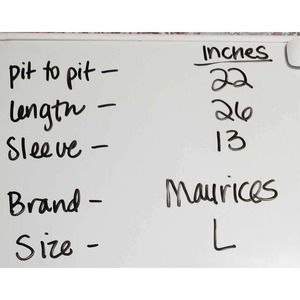 inches
pit to pit – 22
Length – 26
Sleeve – 13
Brand – Maurices
Size – L